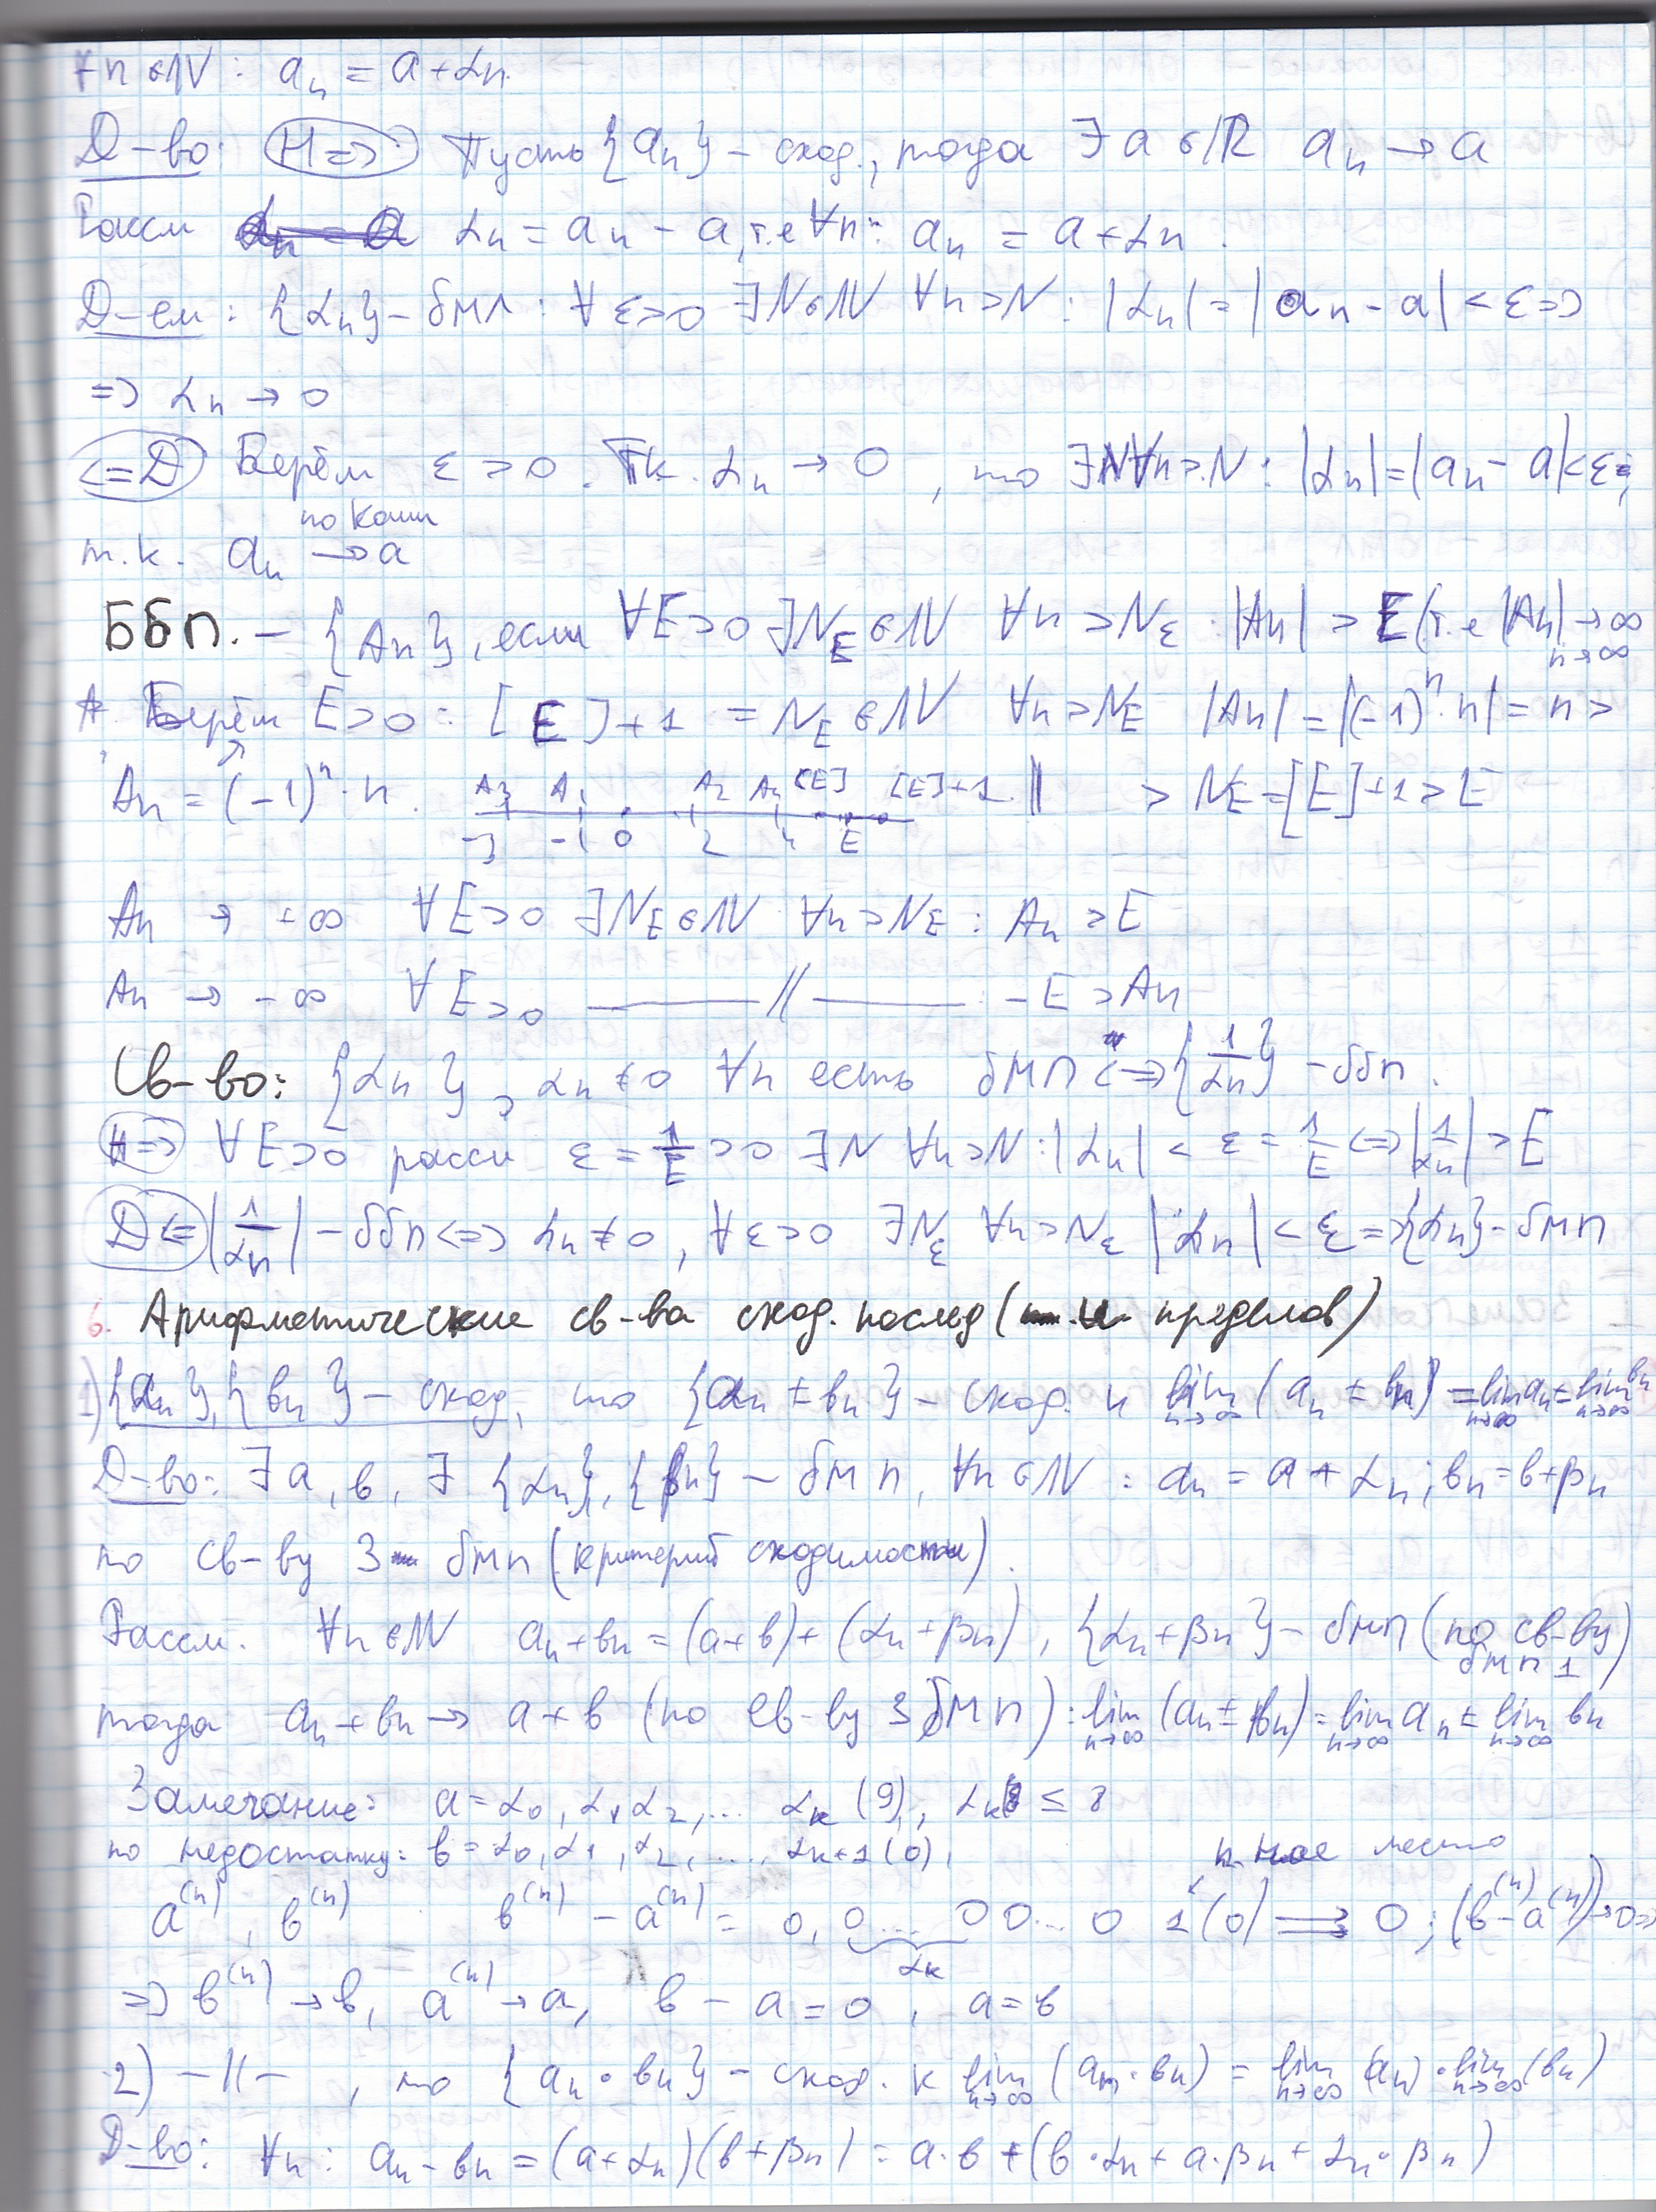 ∀n∈ℕ: aₙ = a+αₙ.
Д-во: (Н=>) Пусть {aₙ} – сход., тогда ∃a∈ℝ aₙ → a
Рассм αₙ = aₙ – a, т.е ∀n: aₙ = a+αₙ.
Д-ем: {αₙ} – бмп: ∀ε>0 ∃N∈ℕ ∀n>N: |αₙ| = |aₙ – a| < ε =>
=> αₙ → 0
(<=Д) Берём ε>0. Тк. αₙ → 0, то ∃N∀n>N: |αₙ|=|aₙ – a|<ε;
по Коши
т.к. aₙ → a
Ббп. – {Aₙ}, если ∀E>0 ∃N_E∈ℕ ∀n>N_ε: |Aₙ| > E (т.е |Aₙ| → ∞
n→∞
Берём E>0: [E]+1 = N_E∈ℕ ∀n>N_E |Aₙ| = |(-1)ⁿ·n| = n >
Aₙ = (-1)ⁿ·n. A₃ A₁ A₂ A₄ [E] [E]+1 || > N_E=[E]+1>E
-3 -1 0 2 4 E
Aₙ → +∞ ∀E>0 ∃N_E∈ℕ ∀n>N_E: Aₙ >E
Aₙ → -∞ ∀E>0 ——//—— : -E >Aₙ
Св-во: {αₙ}, αₙ≠0 ∀n есть бмп <=> {1/αₙ} – ббп.
(Н=>) ∀E>0 рассм ε = 1/E >0 ∃N ∀n>N: |αₙ| < ε = 1/E <=> |1/αₙ| > E
(Д<=) |1/αₙ| – ббп <=> αₙ≠0, ∀ε>0 ∃N_ε ∀n>N_ε |αₙ| < ε => {αₙ} – бмп
6. Арифметические св-ва сход. послед (и пределов)
1) {aₙ}, {вₙ} – сход, то {aₙ ± вₙ} – сход. и lim n→∞ (aₙ ± вₙ) = lim n→∞ aₙ ± lim n→∞ вₙ
Д-во: ∃a, в, ∃ {αₙ}, {βₙ} – бмп, ∀n∈ℕ: aₙ = a + αₙ; вₙ = в+βₙ
по св-ву 3 бмп (критерий сходимости).
Рассм. ∀n∈ℕ aₙ+вₙ = (a+в)+(αₙ+βₙ), {αₙ+βₙ} – бмп (по св-ву
бмп 1)
тогда aₙ+вₙ → a+в (по св-ву 3 бмп): lim n→∞ (aₙ ± вₙ) = lim n→∞ aₙ ± lim n→∞ вₙ
Замечание: a = α₀, α₁ α₂, ... αₖ (9), αₖ ≤ 8
по недостатку: в = α₀, α₁, α₂, ..., αₖ+1 (0),
n-ное место
a⁽ⁿ⁾, в⁽ⁿ⁾ в⁽ⁿ⁾ – a⁽ⁿ⁾ = 0, 0... 0 0... 0 1(0) => 0; (в⁽ⁿ⁾–a⁽ⁿ⁾) → 0 =>
αₖ
=> в⁽ⁿ⁾ → в, a⁽ⁿ⁾ → a, в – a = 0, a = в
2) –//–, то {aₙ·вₙ} – сход. к lim n→∞ (aₙ·вₙ) = lim n→∞ (aₙ)·lim n→∞ (вₙ)
Д-во: ∀n: aₙ·вₙ = (a+αₙ)(в+βₙ) = a·в + (в·αₙ + a·βₙ + αₙ·βₙ)